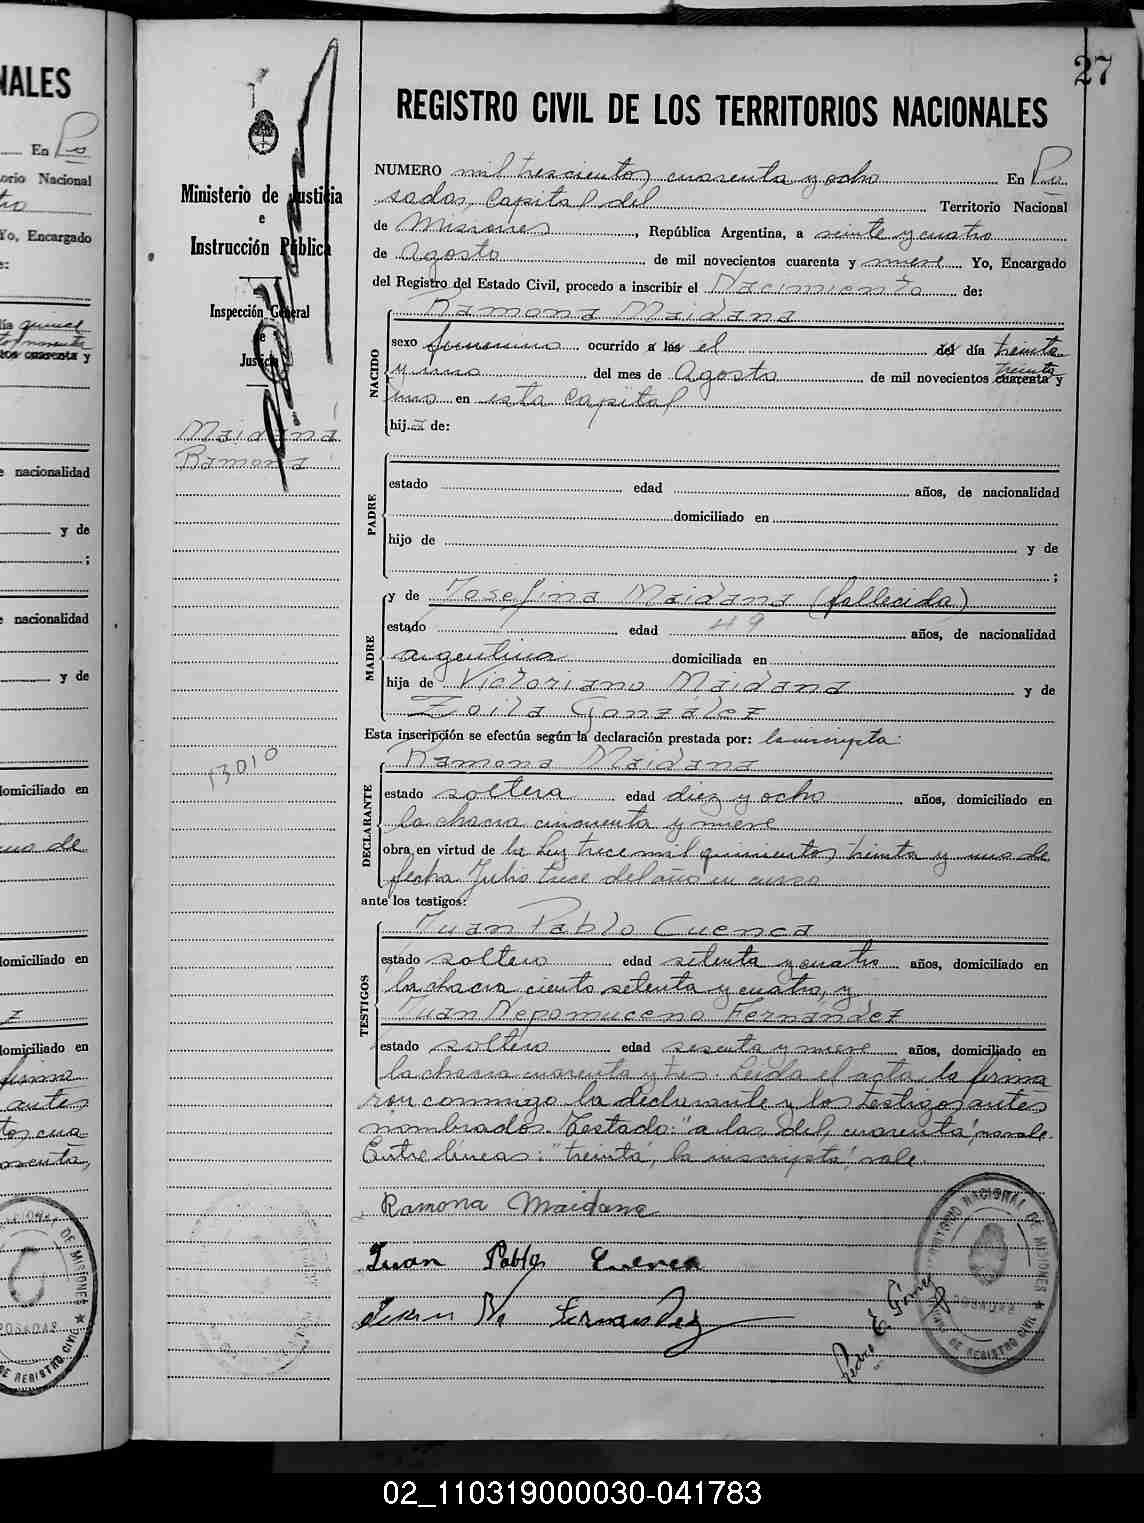 NALES
En Ps
orio Nacional
Yo, Encargado
e nacionalidad
y de
;
e nacionalidad
y de
domiciliado en
domiciliado en
domiciliado en
firma
antes
27
REGISTRO CIVIL DE LOS TERRITORIOS NACIONALES
Ministerio de Justicia
e
Instrucción Pública
Inspección General
de
Justicia
Maidana
Ramona
13010
NUMERO mil trescientos cuarenta y ocho En Po
sadas, Capital del Territorio Nacional
de Misiones, República Argentina, a veinte y cuatro
de Agosto de mil novecientos cuarenta y nueve Yo, Encargado
del Registro del Estado Civil, procedo a inscribir el Nacimiento de:
NACIDO
Ramona Maidana
sexo femenino ocurrido a las el del día treinta
y uno del mes de Agosto de mil novecientos cuarenta y treinta
uno en esta Capital
hija de:
PADRE
estado edad años, de nacionalidad
domiciliado en
hijo de y de
;
MADRE
y de Josefina Maidana (fallecida)
estado edad 49 años, de nacionalidad
argentina domiciliada en
hija de Victoriano Maidana y de
Zoila Gonzalez
Esta inscripción se efectúa según la declaración prestada por: la inscripta:
DECLARANTE
Ramona Maidana
estado soltera edad diez y ocho años, domiciliado en
la chacra cincuenta y nueve
obra en virtud de la Ley trece mil quinientos treinta y uno de
fecha Julio trece del año en curso
ante los testigos:
TESTIGOS
Juan Pablo Cuenca
estado soltero edad setenta y cuatro años, domiciliado en
la chacra ciento setenta y cuatro, y
Juan Nepomuceno Fernández
estado soltero edad sesenta y nueve años, domiciliado en
la chacra cuarenta y tres. Leída el acta, la firma
ron conmigo la declarante y los testigos antes
nombrados. Testado: "a las, del, cuarenta", no vale.
Entre líneas: "treinta, la inscripta", vale.
Ramona Maidana
Juan Pablo Cuenca
Juan N. Fernandez
Pedro E. Gómez
TERRITORIO NACIONAL DE MISIONES
POSADAS
DE REGISTRO CIVIL
NACIONAL DE MISIONES
POSADAS
DE REGISTRO CIVIL
02_110319000030-041783